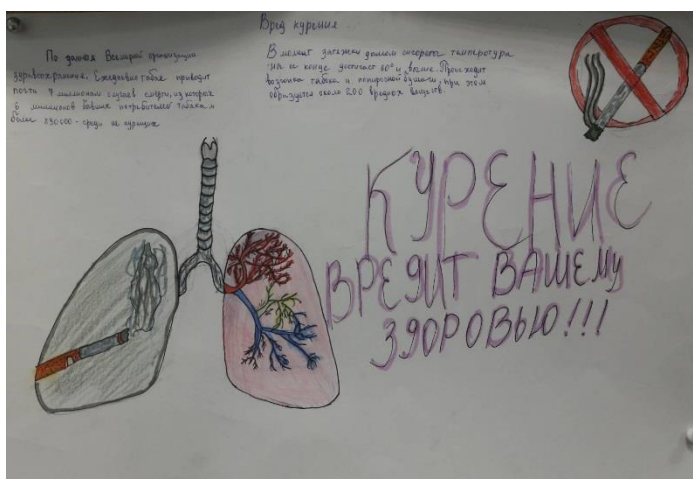 Вред курения
По данным Всемирной организации
здравоохранения. Ежедневно табак приводит
почти 7 миллионам случаев смерти, из которых
6 миллионов бывшие потребители табака и
более 890 000 - среди не курящих
В момент затяжки дымом сигареты температура
на ее конце достигает 60° и выше. Происходит
возгонка табака и папиросной бумаги, при этом
образуется около 200 вредных веществ.
КУРЕНИЕ
ВРЕДИТ ВАШЕМУ
ЗДОРОВЬЮ!!!